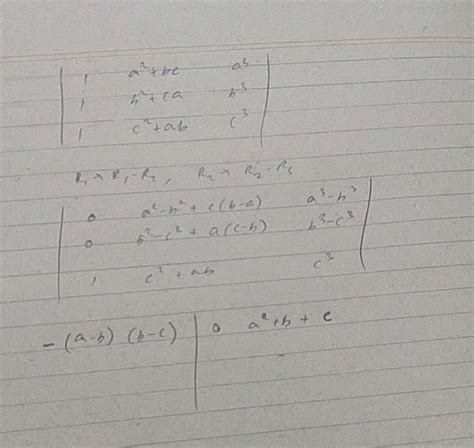 | 1 a²+bc a³ |
| 1 b²+ca b³ |
| 1 c²+ab c³ |
R₁→R₁-R₂, R₂→R₂-R₃
| 0 a²-b²+c(b-a) a³-b³ |
| 0 b²-c²+a(c-b) b³-c³ |
| 1 c²+ab c³ |
-(a-b) (b-c) | 0 a²+b+c